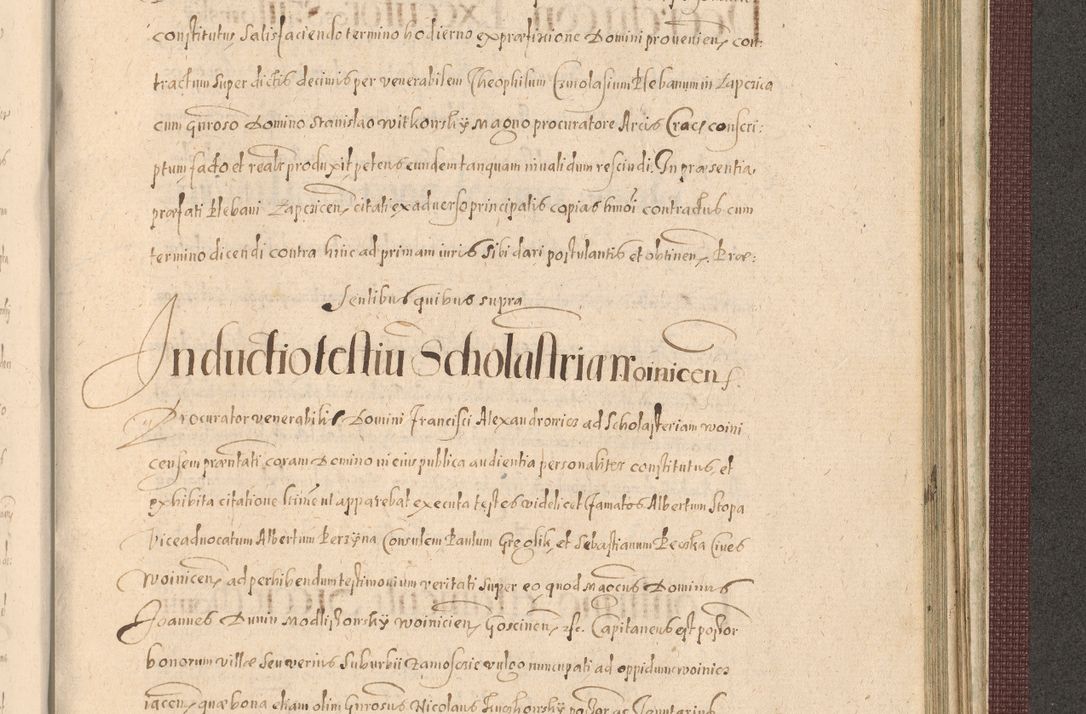 constitutus satisfaciendo termino hodierno ex præfixione Domini provenien, con:
tractum super dictis decimis per venerabilem Theophilum Plebanum in Lapczica
cum gnroso Domino Stanislao Witkowsky Magno procuratore Arcis Crac, conscri:
ptum facto et realr produxit petens eundem tanquam invalidum rescindi. In præsentia
præfati Plebani Lapczicen, citati ex adverso principalis copias hmoi contractus cum
termino dicendi contra hinc ad primam iuris sibi dari postulantis et obtinen, Præ:
sentibus quibus supra
Inductio testiū Scholastria Woinicen,
Procurator venerabilis Domini Francisci Alexandrowicz ad Scholasteriam Woini
censem præntati coram Domino in eius publica audientia personaliter constitutus, et
exhibita citatione ut apparebat executa testes videlicet famatos Albertum Stopa
Viceadvocatum Albertum Perzyna Consulem Paulum Greglik, et Sebastianum Peczka Cives
Woinicen, ad perhibendum testimonium veritati super eo quod Magcus Dominus
Joannes Dunin Modlissowsky Woinicien, Goscinen, etc. Capitaneus est possor
bonorum villæ seu verius suburbii Zamoscie vulgo nuncupati ad oppidum Woinicz
iacen, quæ bona etiam olim Gnrosus Nicolaus possor ac